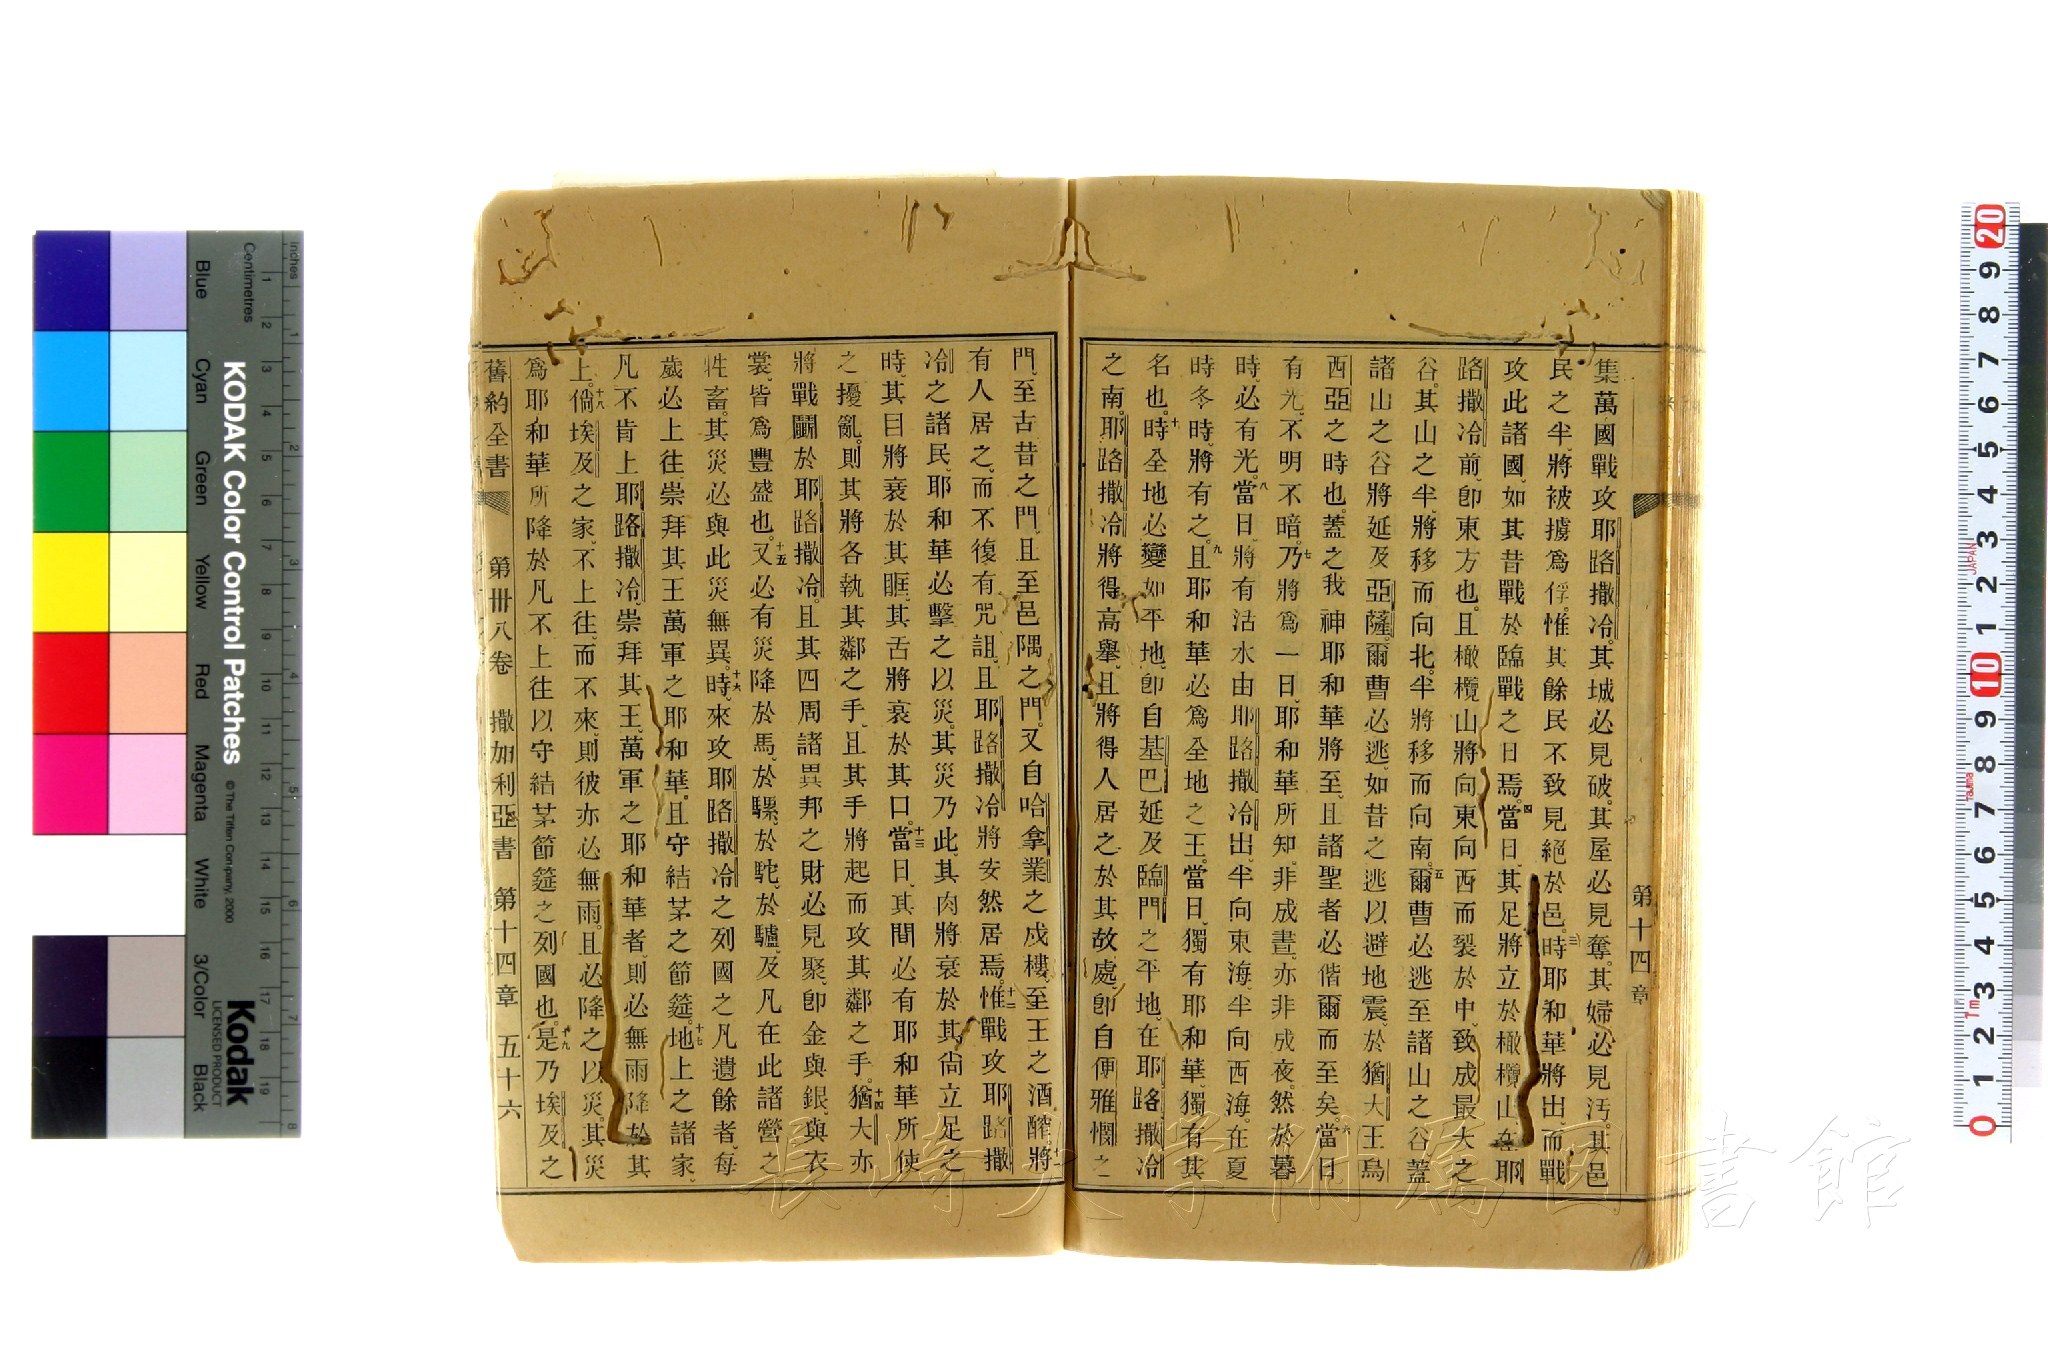 第十四章
集萬國戰攻耶路撒冷。其城必見破。其屋必見奪。其婦必見汚。其邑
民之半、將被擄爲俘。惟其餘民不致見絕於邑。三時耶和華將出、而戰
攻此諸國、如其昔戰於臨戰之日焉。四當日、其足將立於橄欖山在耶
路撒冷前、卽東方也。且橄欖山將向東向西而裂於中、致成最大之
谷。其山之半、將移而向北。半將移而向南。五爾曹必逃至諸山之谷。蓋
諸山之谷將延及亞薩。爾曹必逃、如昔之逃以避地震、於猶大王烏
西亞之時也。蓋之我神耶和華將至、且諸聖者必偕爾而至矣。六當日
有光、不明不暗。七乃將爲一日、耶和華所知、非成晝、亦非成夜。然於暮
時、必有光。八當日、將有活水由耶路撒冷出、半向東海、半向西海。在夏
時冬時、將有之。九且耶和華必爲全地之王。當日、獨有耶和華、獨有其
名也。十時全地必變如平地、卽自基巴延及臨門之平地、在耶路撒冷
之南。耶路撒冷將得高舉、且將得人居之於其故處、卽自便雅憫之
門、至古昔之門、且至邑隅之門。又自哈拿業之戍樓、至王之酒醡。十一將
有人居之、而不復有咒詛、且耶路撒冷將安然居焉。十二惟戰攻耶路撒
冷之諸民、耶和華必擊之以災。其災乃此、其肉將衰於其尙立足之
時、其目將衰於其眶、其舌將衰於其口。十三當日、其間必有耶和華所使
之擾亂。則其將各執其鄰之手、且其手將起而攻其鄰之手。十四猶大亦
將戰鬭於耶路撒冷。且其四周諸異邦之財必見聚、卽金與銀、與衣
裳、皆爲豐盛也。十五又必有災降於馬、於騾、於駝、於驢、及凡在此諸營之
牲畜。其災必與此災無異。十六時、來攻耶路撒冷之列國之凡遺餘者、每
歲必上往崇拜其王萬軍之耶和華。且守結茅之節筵。十七地上之諸家、
凡不肯上耶路撒冷、崇拜其王、萬軍之耶和華者、則必無雨降於其
上。十八倘埃及之家、不上往、而不來、則彼亦必無雨。且必降之以災、其災
爲耶和華所降於凡不上往以守結茅節筵之列國也。十九是乃埃及之
舊約全書 第卅八卷 撒加利亞書 第十四章 五十六
長崎大学附属図書館
KODAK Color Control Patches
© The Tiffen Company, 2000
Kodak
LICENSED PRODUCT
Inches
Centimetres
Blue
Cyan
Green
Yellow
Red
Magenta
White
3/Color
Black
1 2 3 4 5 6 7 8 9 10 11 12 13 14 15 16 17 18 19
1 2 3 4 5 6 7 8
20 9 8 7 6 5 4 3 2 1 10 9 8 7 6 5 4 3 2 1 0
JAPAN
Tajima
1m